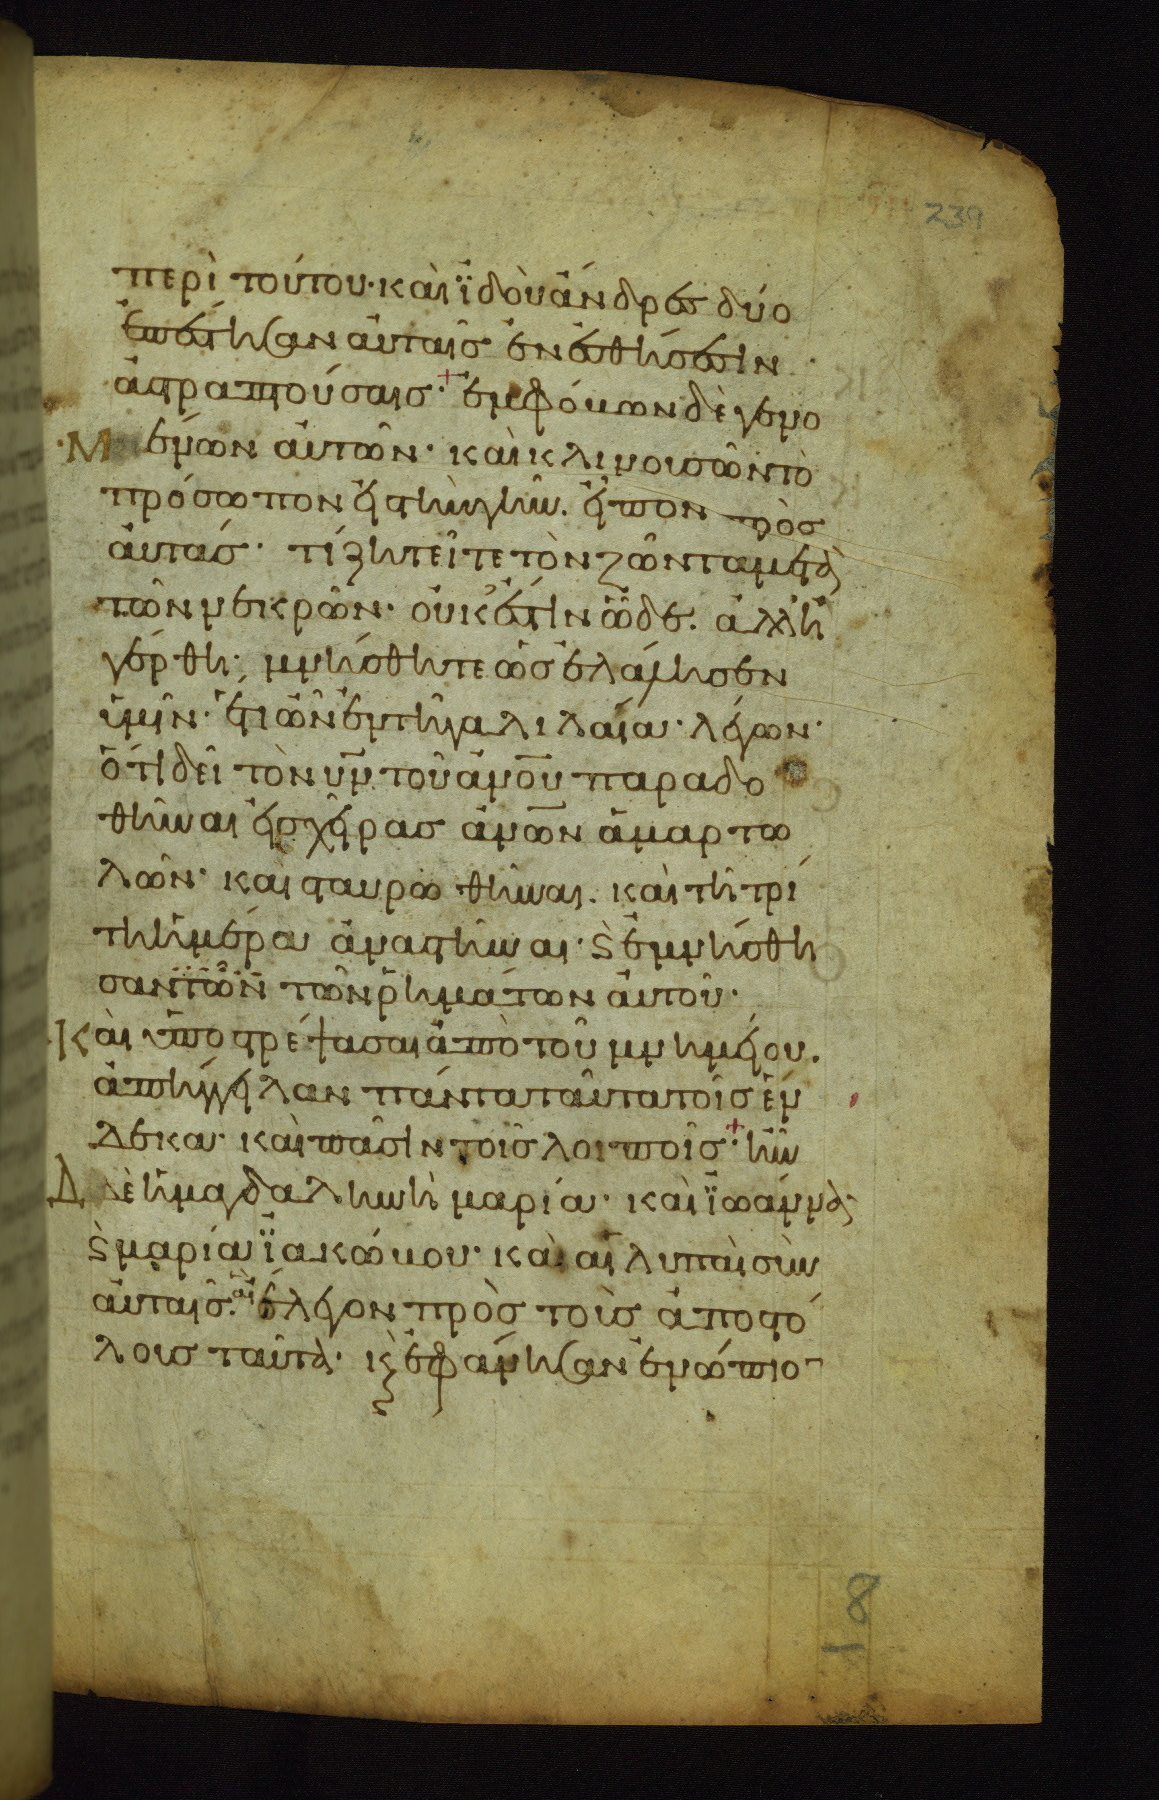 239
περὶ τούτου· καὶ ἰδοὺ ἄνδρες δύο
ἐπέστησαν αὐταῖς ἐν ἐσθήσεσιν
ἀστραπτούσαις· ἐμφόβων δὲ γενο
μένων αὐτῶν· καὶ κλινουσῶν τὸ
πρόσωπον εἰς τὴν γῆν. εἶπον πρὸς
αὐτάς· τί ζητεῖτε τὸν ζῶντα μετὰ
τῶν νεκρῶν· οὐκ ἔστιν ὧδε. ἀλλ' ἠ
γέρθη· μνήσθητε ὡς ἐλάλησεν
ὑμῖν· ἔτι ὢν ἐν τῆ γαλιλαία· λέγων·
ὅτι δεῖ τὸν υν τοῦ ανου παραδο
θῆναι εἰς χεῖρας ανων ἁμαρτω
λῶν· καὶ σταυρωθῆναι. καὶ τῆ τρί
τη ἡμέρα ἀναστῆναι· ϗ ἐμνήσθη
σαν τῶν τῶν ῥημάτων αὐτοῦ·
Καὶ ὑποστρέψασαι ἀπὸ τοῦ μνημείου.
ἀπήγγειλαν πάντα ταῦτα τοῖς ἕν
δεκα· καὶ πᾶσιν τοῖς λοιποῖς· ἦν
δὲ ἡ μαγδαληνὴ μαρία· καὶ ἰωάννα·
ϗ μαρία ἰακώβου· καὶ αἱ λυπαὶ σὺν
αὐταῖς. αἳ ἔλεγον πρὸς τοὺς ἀποστό
λους ταῦτα· ϗ ἐφάνησαν ἐνώπιο
18